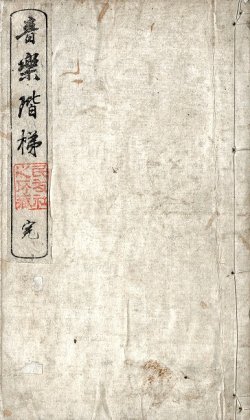 音樂階梯
完